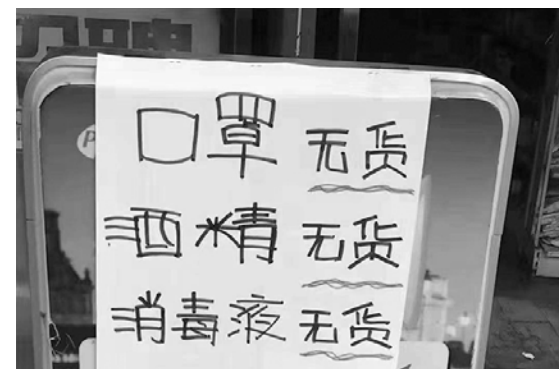 口罩 无货
酒精 无货
消毒液 无货